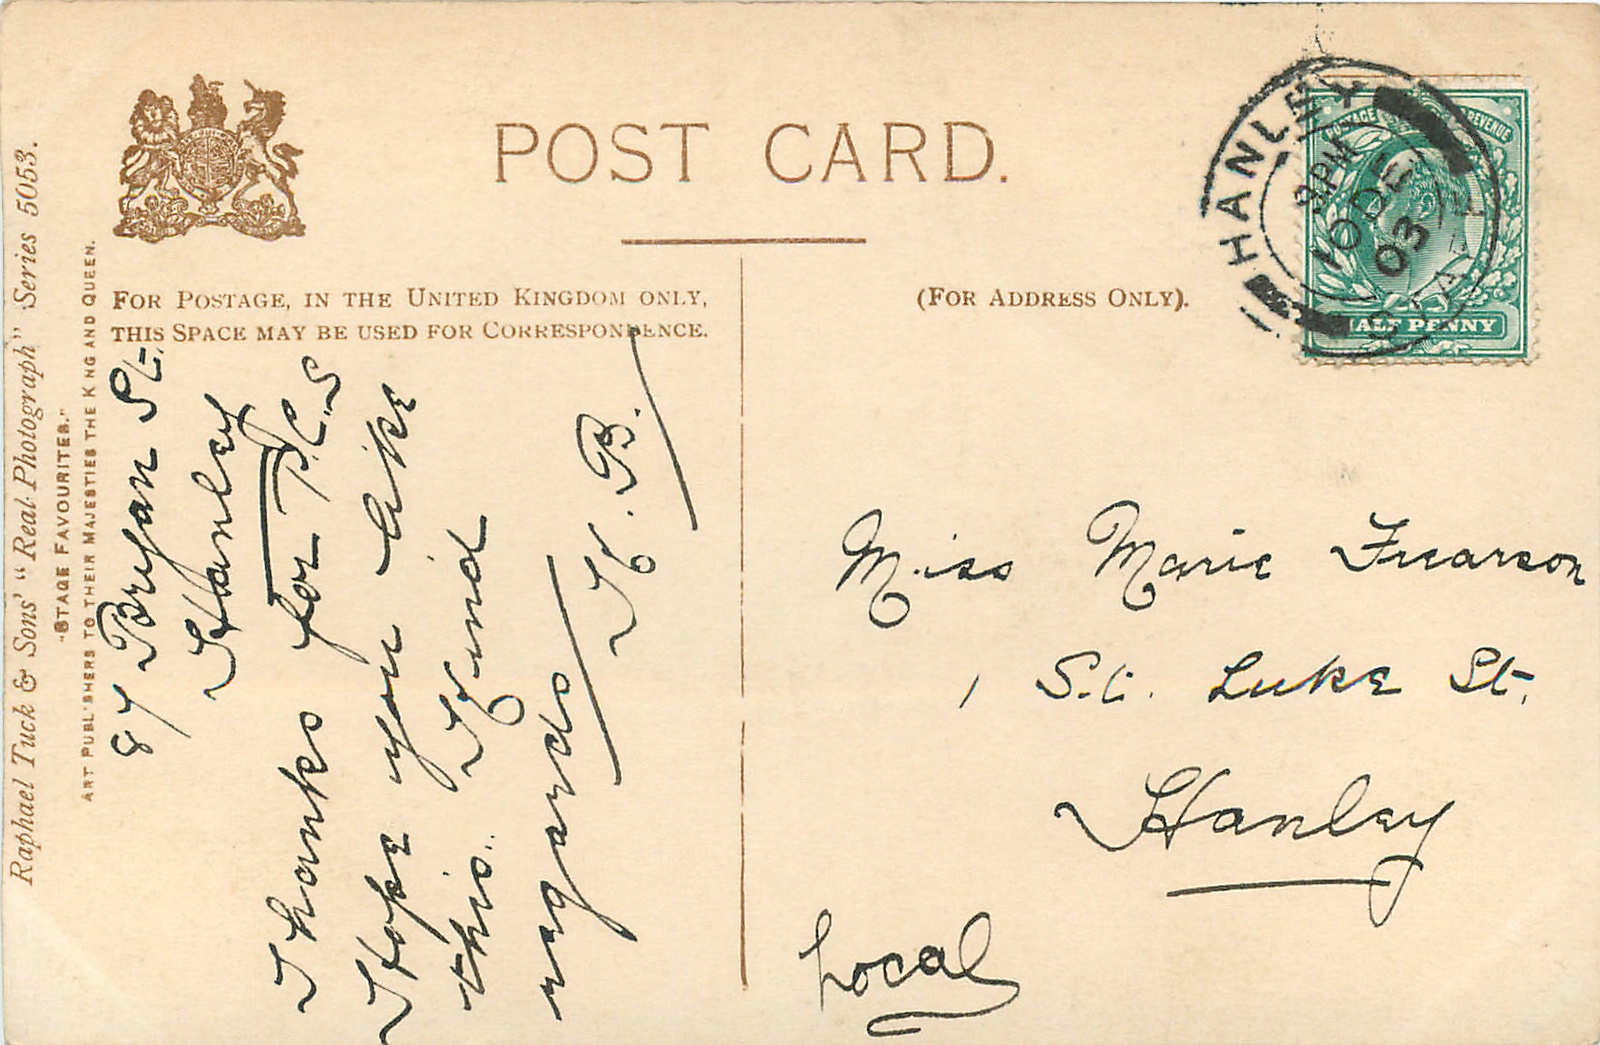 POST CARD.
FOR POSTAGE, IN THE UNITED KINGDOM ONLY,
THIS SPACE MAY BE USED FOR CORRESPONDENCE.
(FOR ADDRESS ONLY).
Raphael Tuck & Sons' "Real Photograph" Series 5053.
"STAGE FAVOURITES."
ART PUBLISHERS TO THEIR MAJESTIES THE KING AND QUEEN.
87 Bryan St.
Hanley
Thanks for P.C.S
Hope you like
this. Kind
regards
H. B.
HANLEY
9 PM
10 DE
03
STAFF
POSTAGE REVENUE
HALF PENNY
Miss Marie Frearson
1 St. Luke St.
Hanley
Local